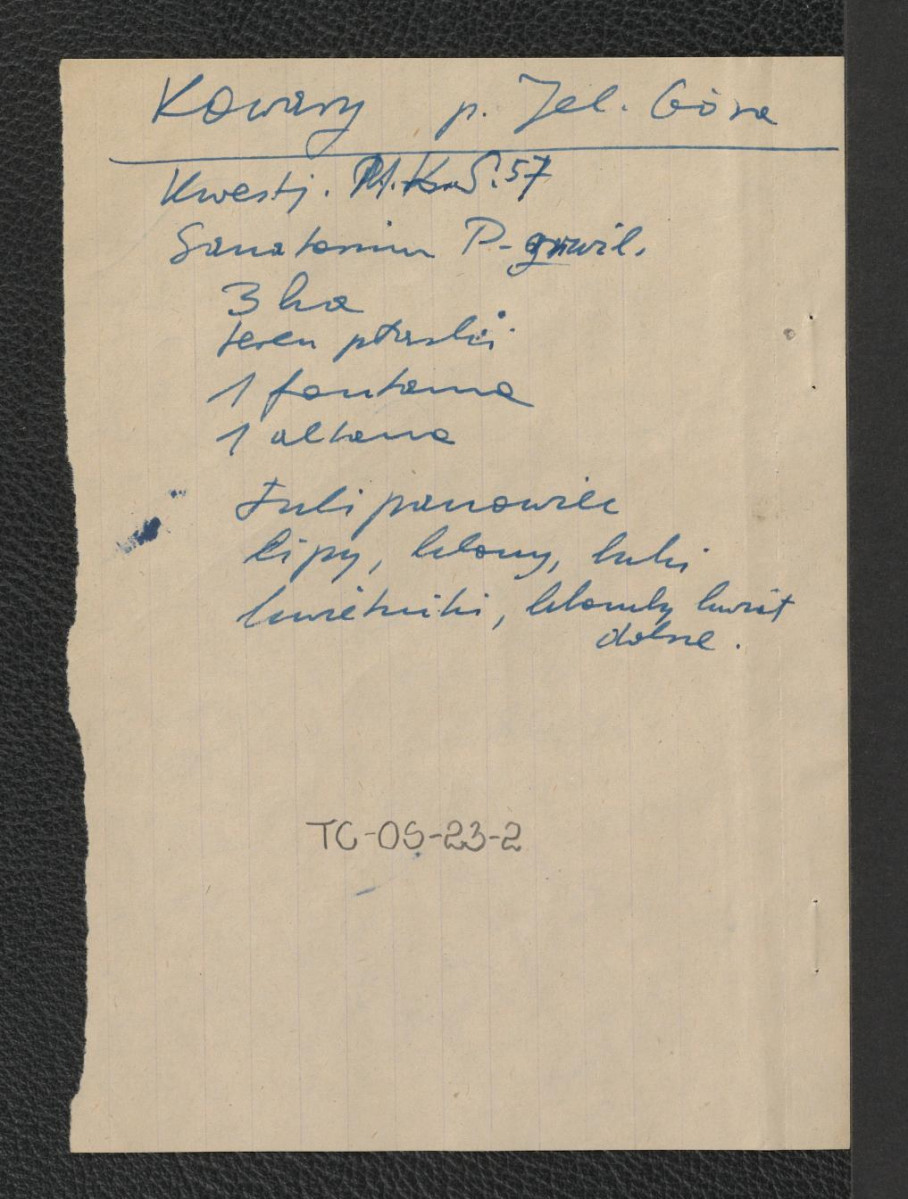 Kowary p. Jel. Góra
Kwestj. M.K. i S. 57
Sanatorium P-gruźl.
3 ha
teren płaski
1 fontanna
1 altana
Tulipanowiec
lipy, klony, buki
kwietniki, klomby kwiat
dolne.
TC-OS-23-2